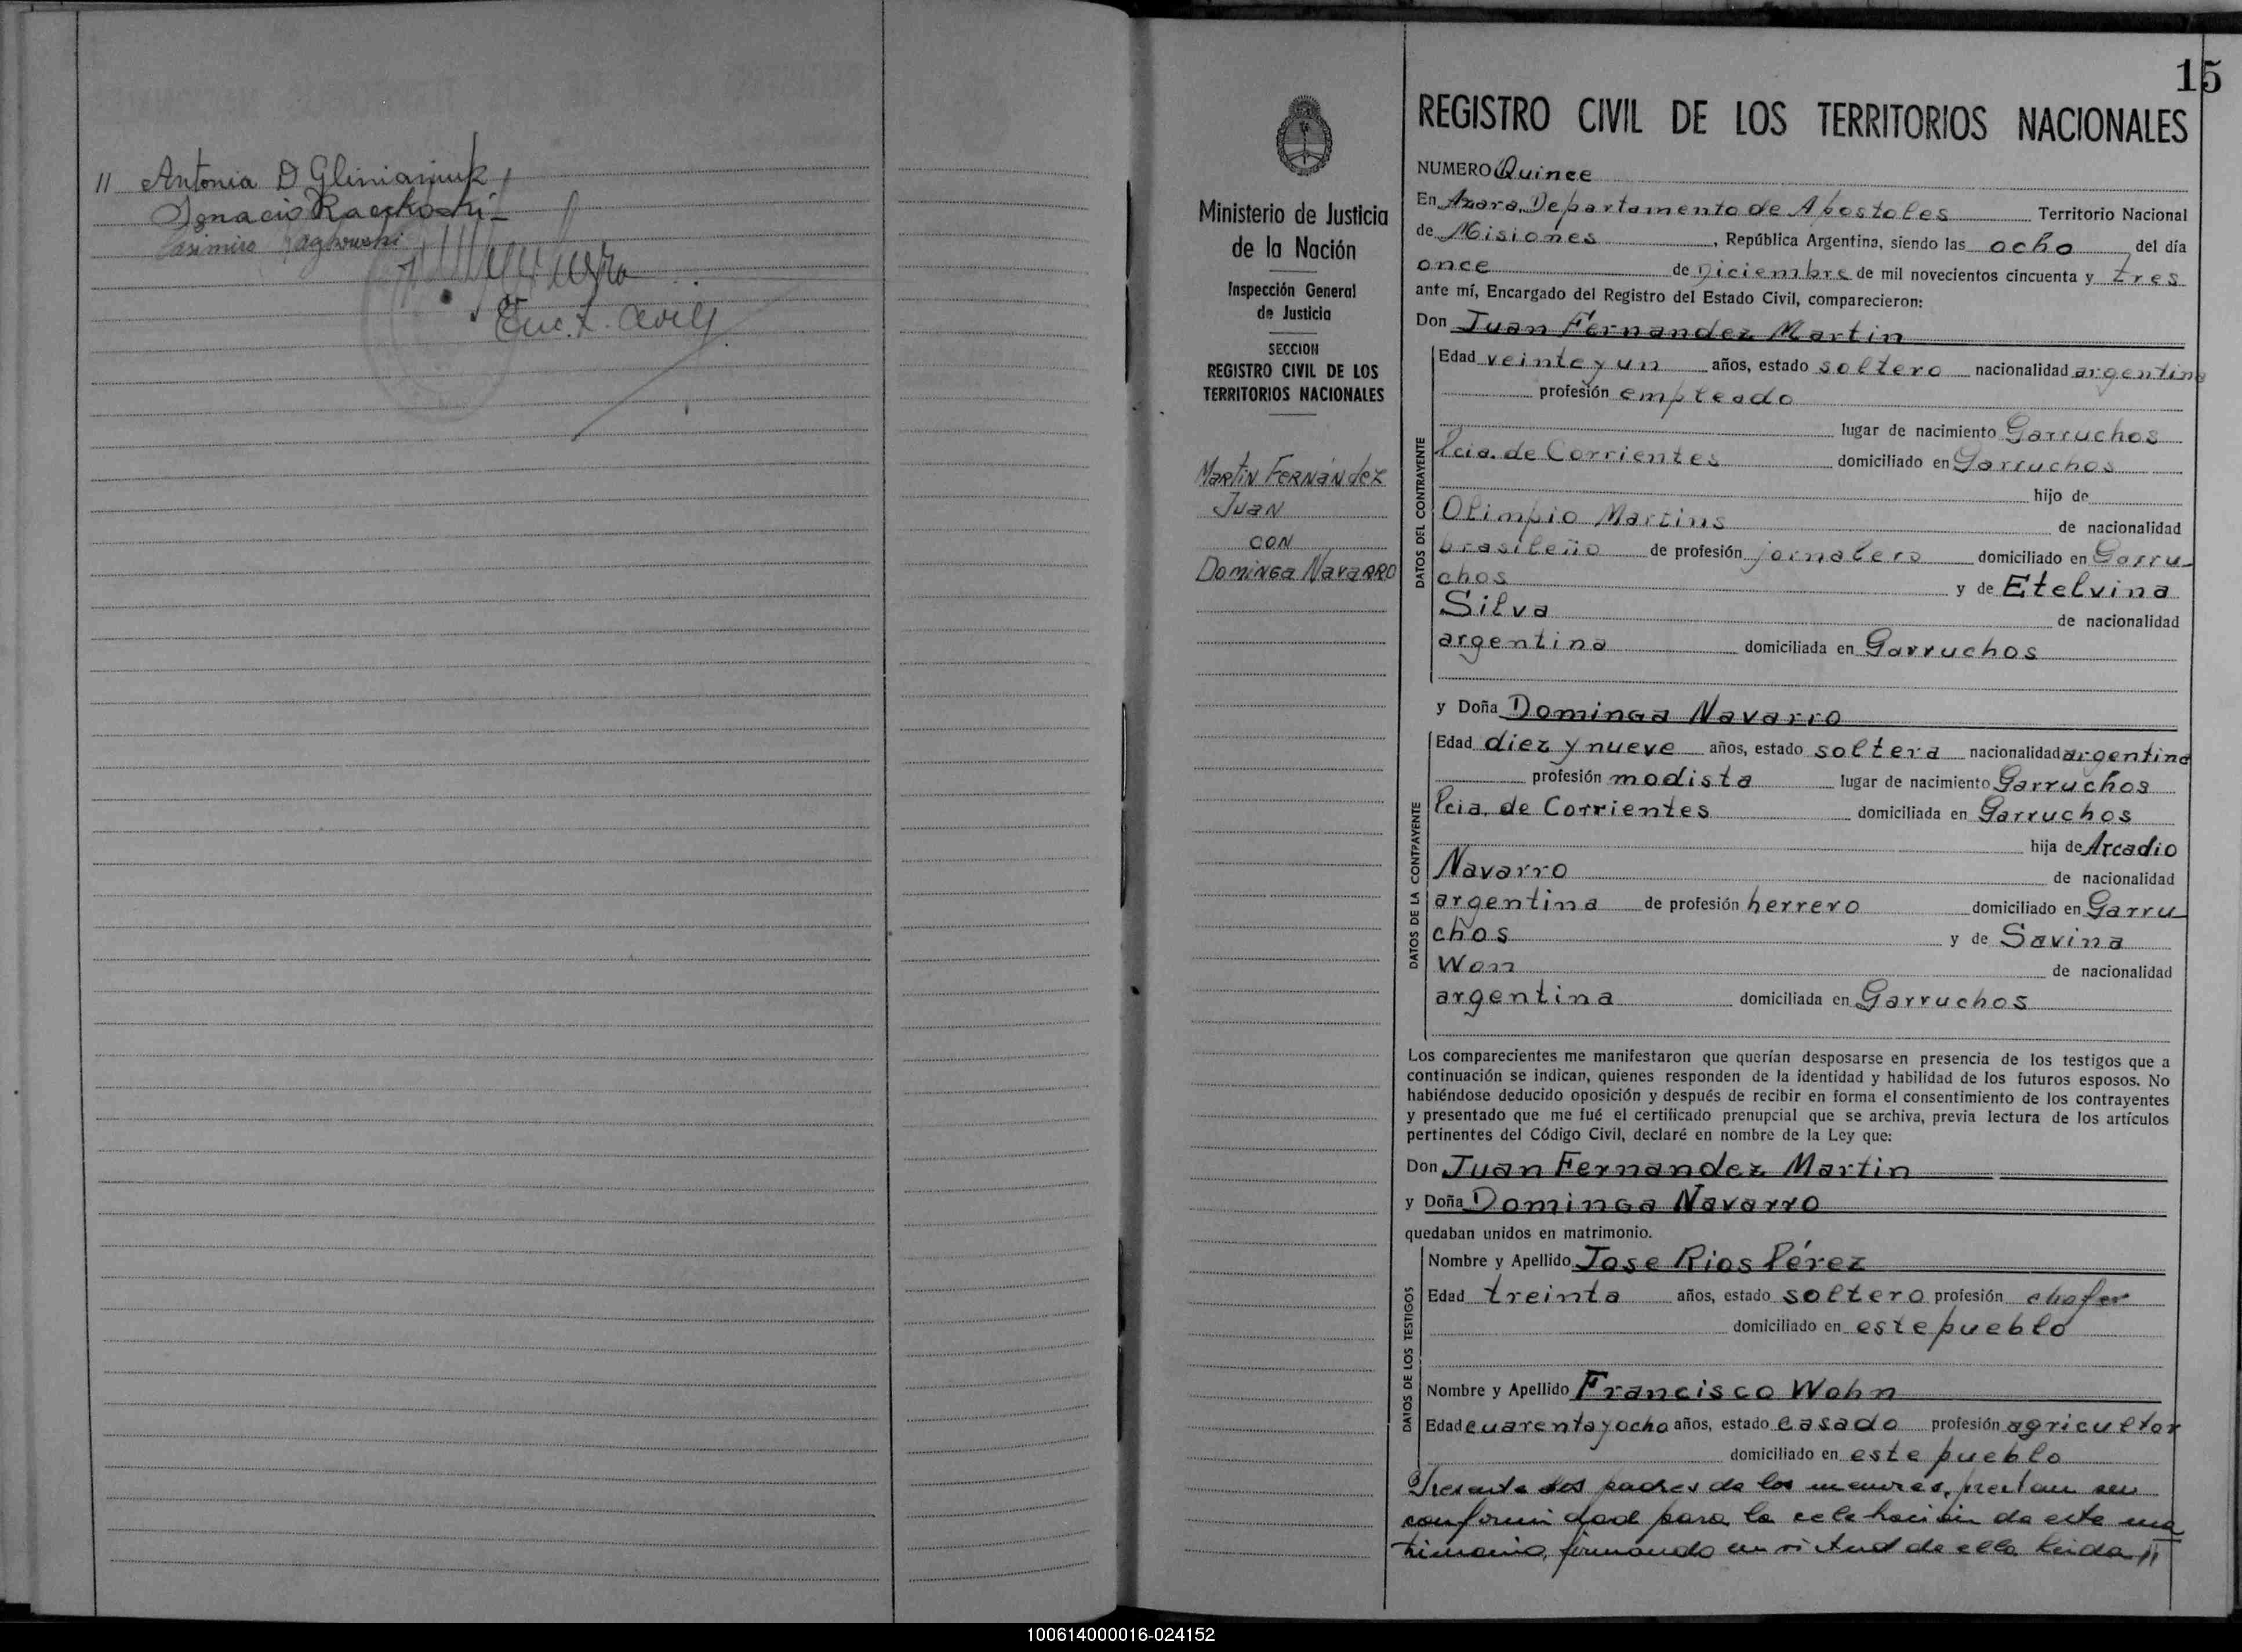 11 Antonia D Glinianiuk
Ignacio Raczkoski
Casimiro
Enc. R. Civil
Ministerio de Justicia
de la Nación
Inspección General
de Justicia
SECCION
REGISTRO CIVIL DE LOS
TERRITORIOS NACIONALES
Martin Fernández
Juan
con
Dominga Navarro
15
REGISTRO CIVIL DE LOS TERRITORIOS NACIONALES
NUMERO Quince
En Azara, Departamento de Apostoles Territorio Nacional
de Misiones, República Argentina, siendo las ocho del día
once de Diciembre de mil novecientos cincuenta y tres
ante mí, Encargado del Registro del Estado Civil, comparecieron:
Don Juan Fernandez Martin
DATOS DEL CONTRAYENTE
Edad veinte y un años, estado soltero nacionalidad argentina
profesión empleado
lugar de nacimiento Garruchos
Pcia. de Corrientes domiciliado en Garruchos
hijo de
Olimpio Martins de nacionalidad
brasileño de profesión jornalero domiciliado en Garru-
chos y de Etelvina
Silva de nacionalidad
argentina domiciliada en Garruchos
y Doña Dominga Navarro
DATOS DE LA CONTRAYENTE
Edad diez y nueve años, estado soltera nacionalidad argentina
profesión modista lugar de nacimiento Garruchos
Pcia. de Corrientes domiciliada en Garruchos
hija de Arcadio
Navarro de nacionalidad
argentina de profesión herrero domiciliado en Garru
chos y de Savina
Won de nacionalidad
argentina domiciliada en Garruchos
Los comparecientes me manifestaron que querían desposarse en presencia de los testigos que a
continuación se indican, quienes responden de la identidad y habilidad de los futuros esposos. No
habiéndose deducido oposición y después de recibir en forma el consentimiento de los contrayentes
y presentado que me fué el certificado prenupcial que se archiva, previa lectura de los artículos
pertinentes del Código Civil, declaré en nombre de la Ley que:
Don Juan Fernandez Martin
y Doña Dominga Navarro
quedaban unidos en matrimonio.
DATOS DE LOS TESTIGOS
Nombre y Apellido Jose Rios Pérez
Edad treinta años, estado soltero profesión chofer
domiciliado en este pueblo
Nombre y Apellido Francisco Wohn
Edad cuarenta y ocho años, estado casado profesión agricultor
domiciliado en este pueblo
Presente los padres de los menores, prestan su
conformidad para la celebración de este ma
trimonio, firmando en virtud de ello. Leida //
100614000016-024152